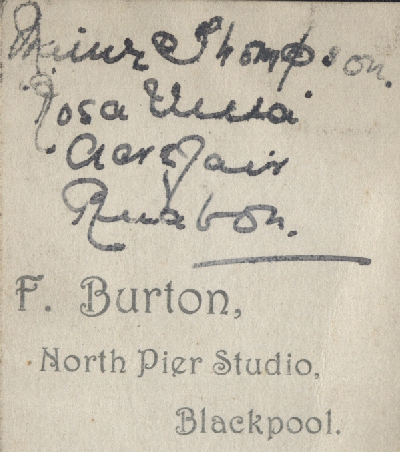 Thompson.
Rosa Villa
Acrefair
Ruabon.
F. Burton,
North Pier Studio,
Blackpool.